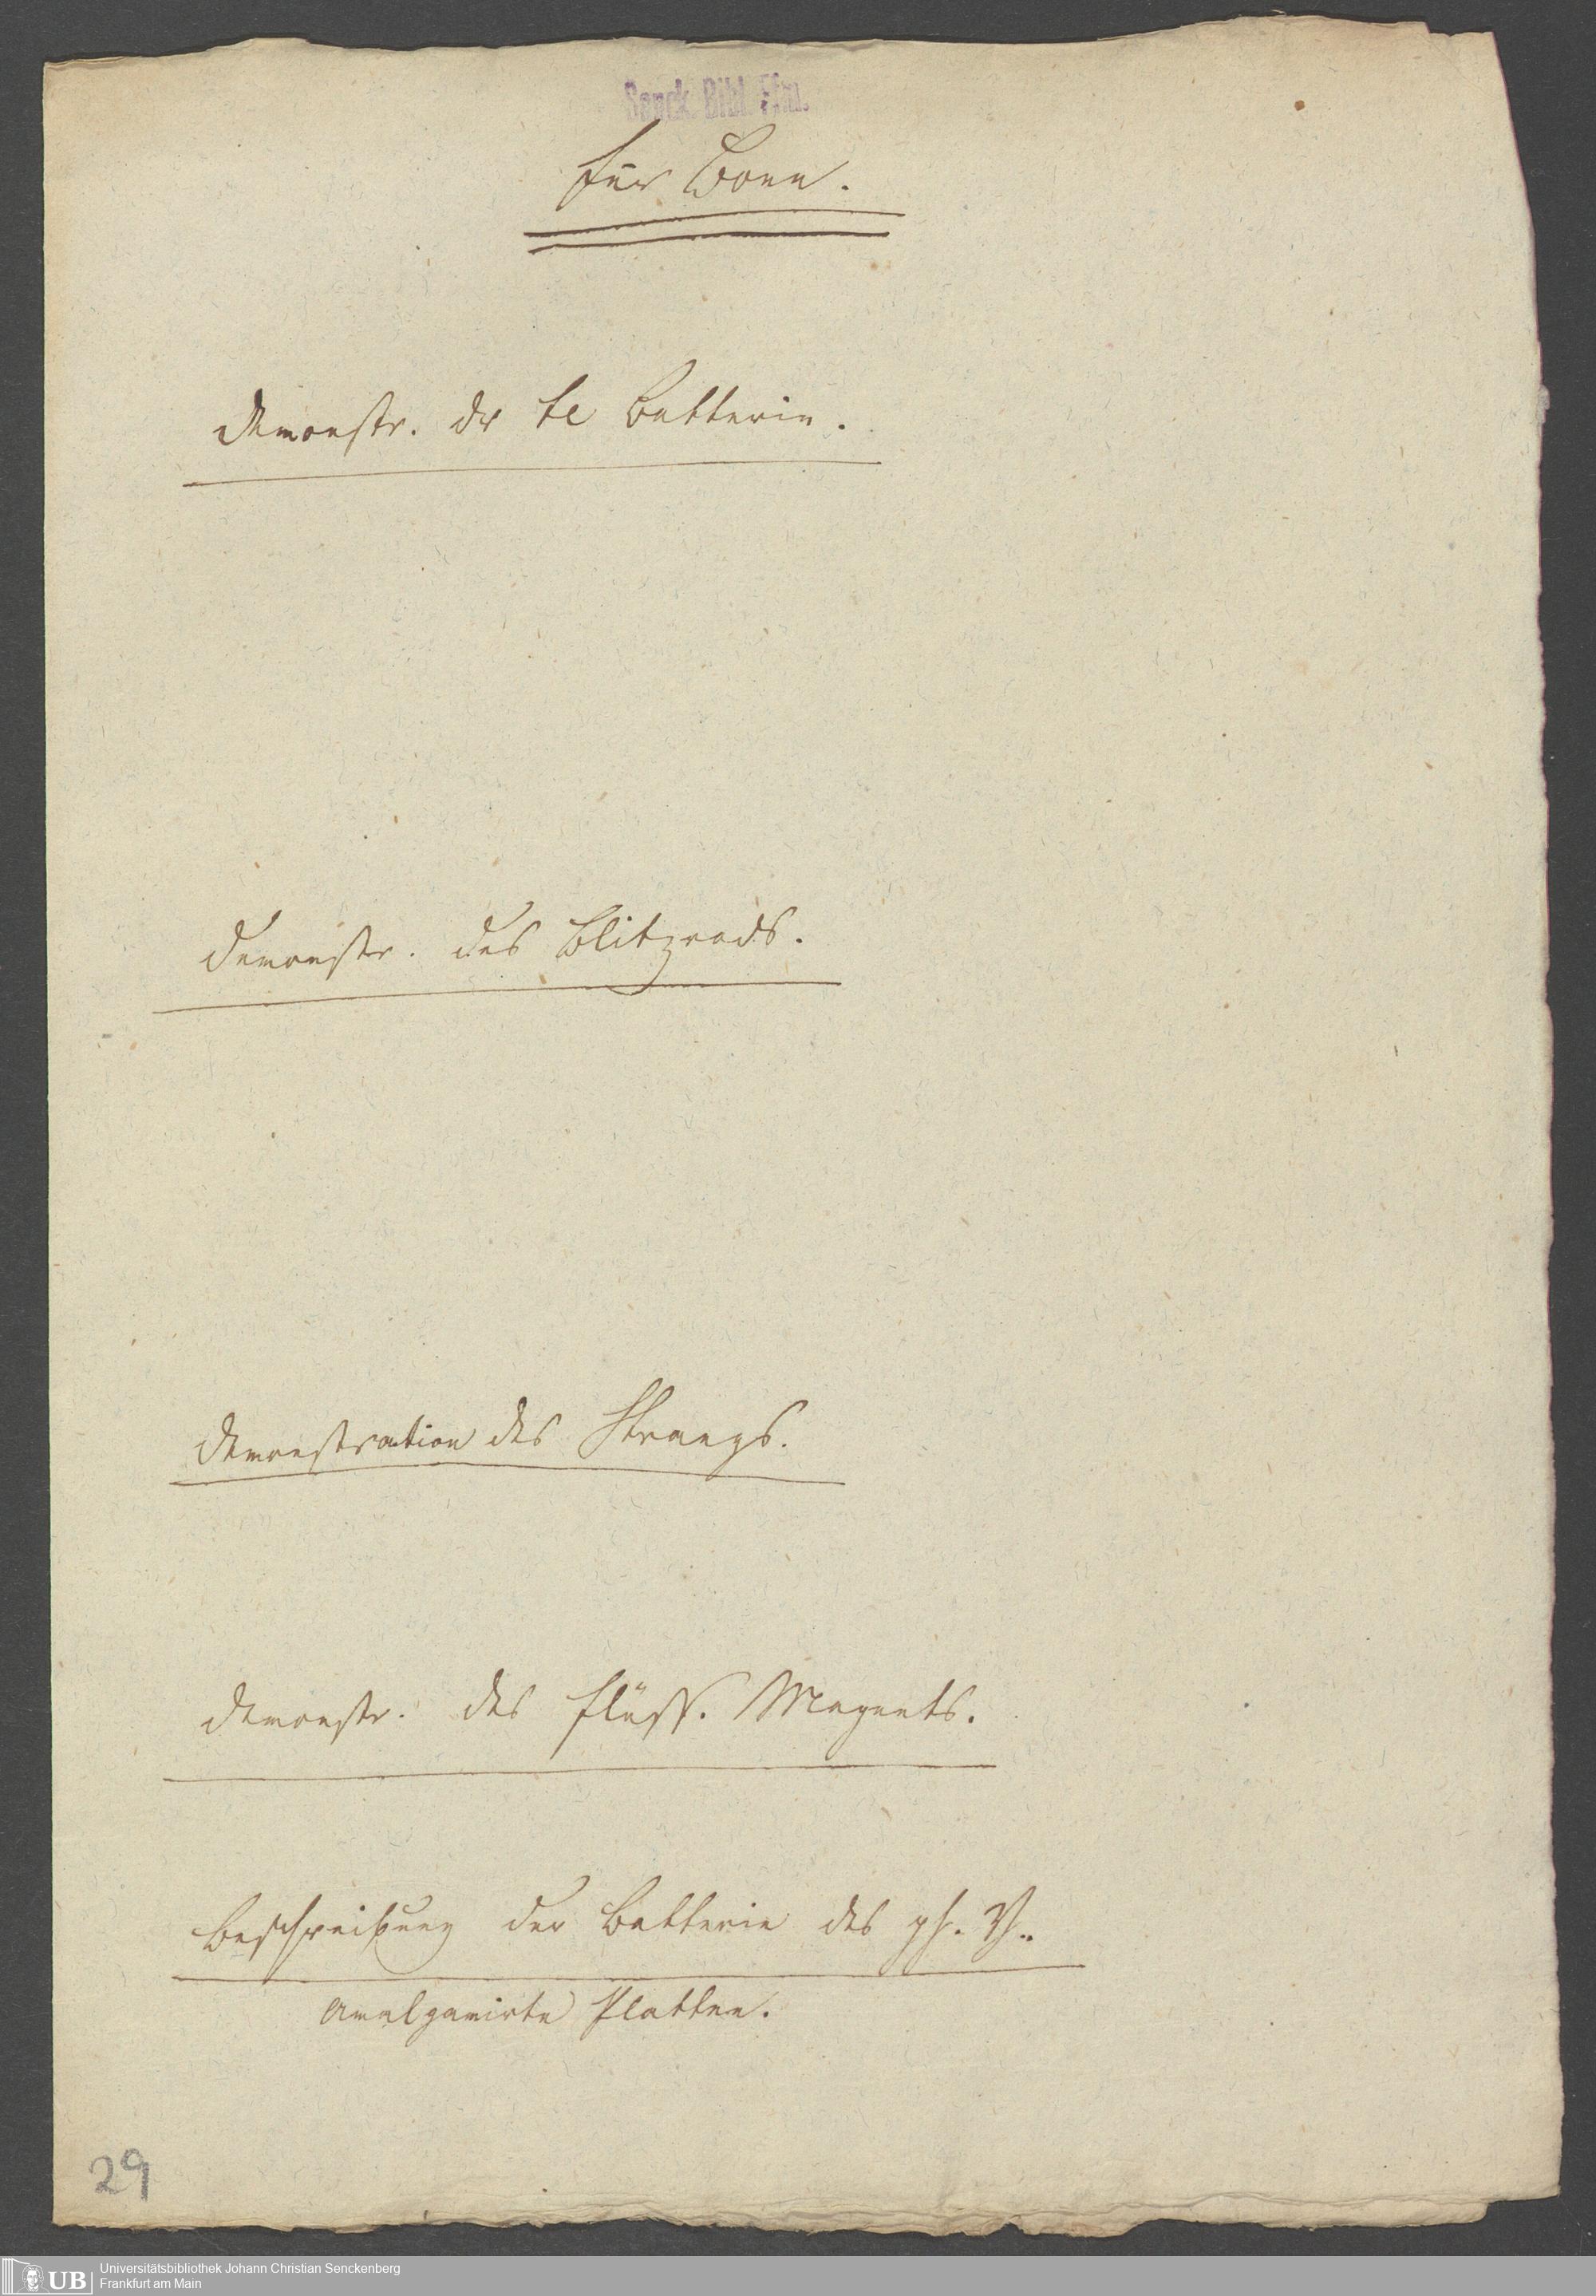 Senck. Bibl. Ffm.
für Bonn.
demonstr. der te Batterie.
demonstr. des Blitzrads.
demonstration des Strangs.
demonstr. des flüss. Magnets.
Beschreibung der Batterie des ph. V..
Amalgamirte Platten.
29
UB
Universitätsbibliothek Johann Christian Senckenberg
Frankfurt am Main